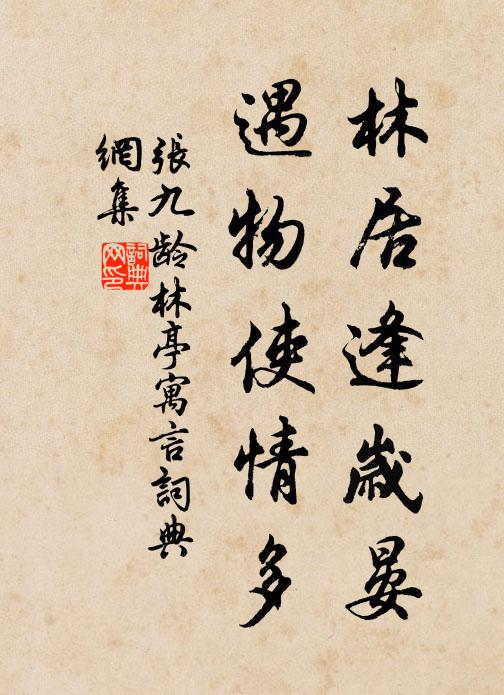 林居逢歲晏
遇物使情多
張九齡林亭寓言詞典
網集
詞典
网印